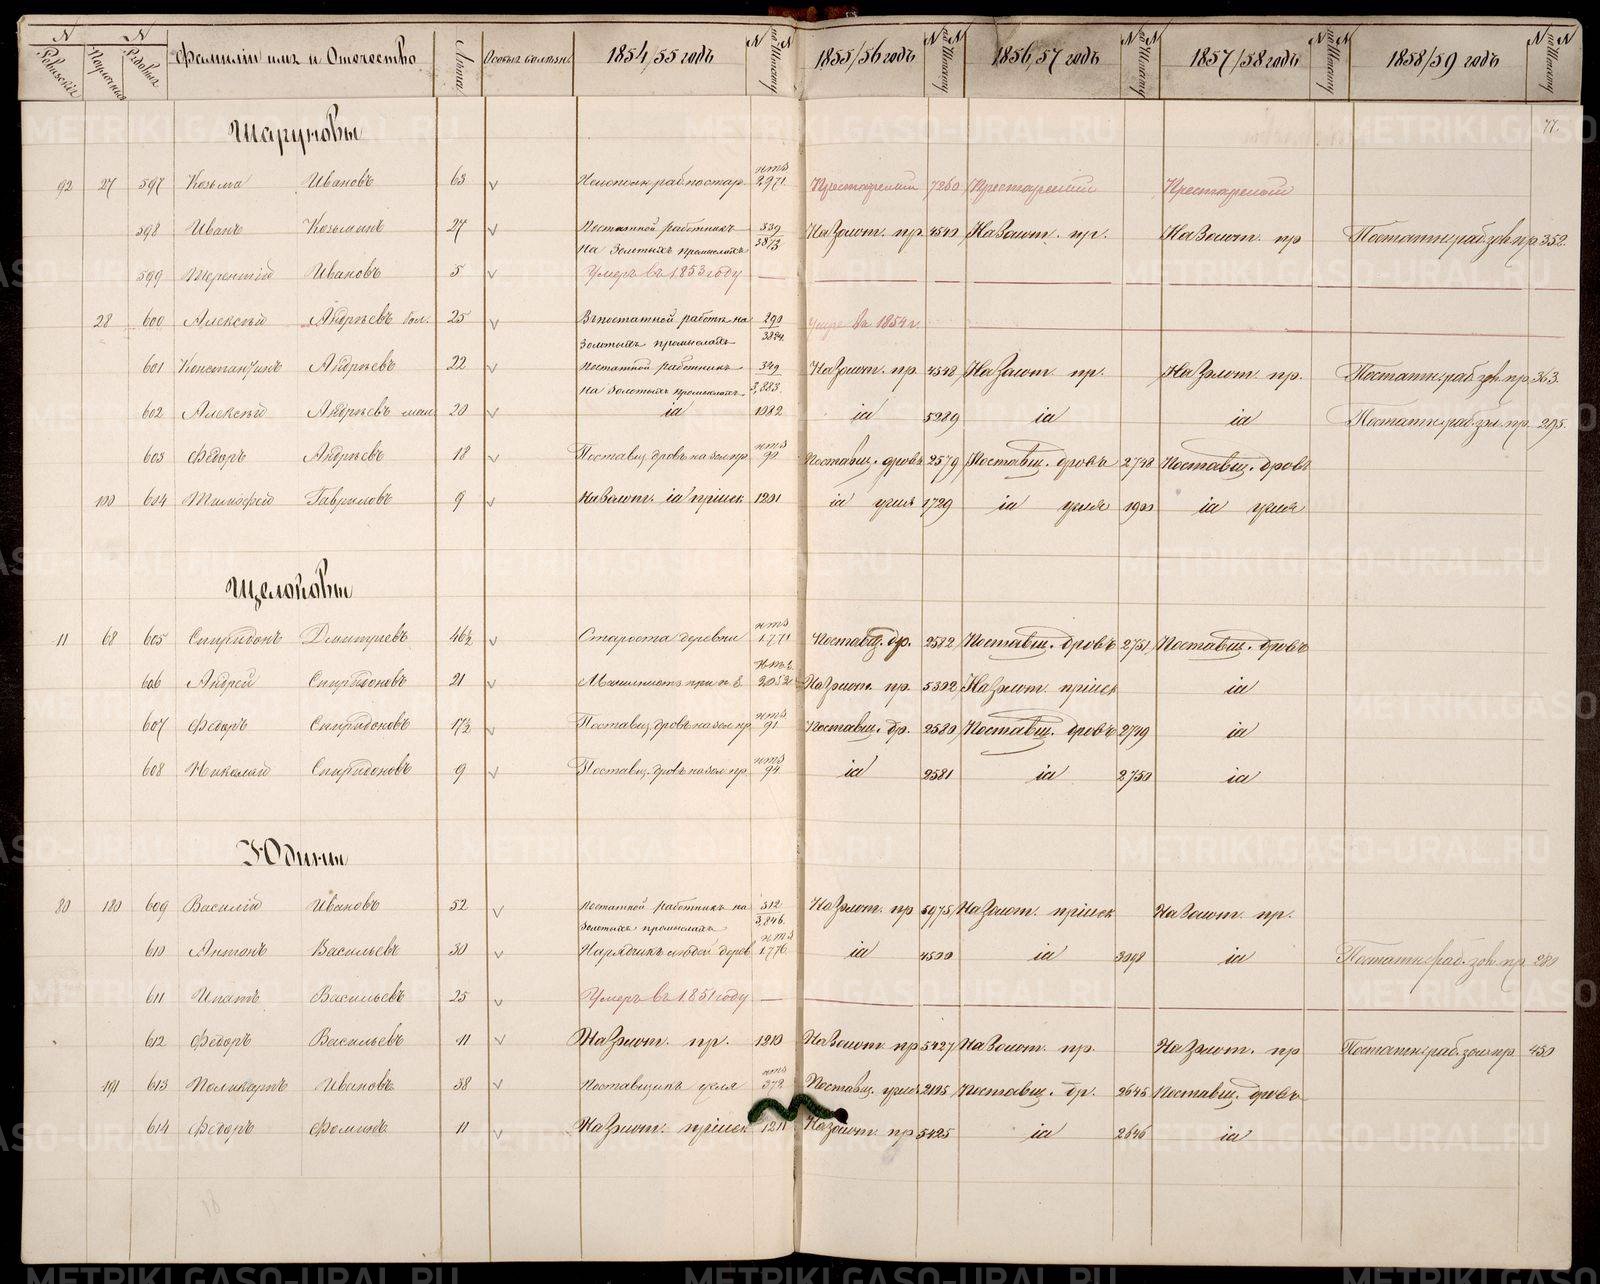 № Ревизскія № Поученыя № Рядовыя Фамиліи имя и Отечество Лѣта Особыя болѣзни 1854/55 годъ № по Списку 1855/56 годъ № по Списку 1856/57 годъ № по Списку 1857/58 годъ № по Списку 1858/59 годъ № по Списку
77.
Шаруновы
92 27 597 Козьма Ивановъ 63 2971 Престарелый 7260 Престарелый Престарелый
598 Иванъ Козьминъ 27 Постатной работникъ на Золотыхъ промыслахъ 339 3873 На Золот. пр. 4540 На Золот. пр. На Золот. пр Постатн. раб. зол. пр 352.
599 Терентій Ивановъ 5 Умеръ въ 1853 году
28 600 Алексѣй Андрѣевъ бол. 25 Въ постатной работѣ на Золотыхъ промыслахъ 290 3824. умре въ 1854 г.
601 Константинъ Андрѣевъ 22 Постатной работникъ на Золотыхъ промыслахъ 349 3,883. На Золот. пр. 4548 На Золот. пр. На Золот. пр. Постатн. раб. зол. пр. 363.
602 Алексѣй Андрѣевъ мал. 20 іd 1082 іd 5289 іd іd Постатн. раб. зол. пр. 295.
603 Федоръ Андрѣевъ 18 Поставщ. дровъ на зол. пр. 90 Поставщ. дровъ 2579 Поставщ. дровъ 2748 Поставщ. дровъ
100 604 Тимофей Гавриловъ 9 На Золот. іd пріиск 1201 іd угля 1729 іd угля 1900 іd угля
Щелоковы
11 68 605 Спиридонъ Дмитріевъ 46½ Староста деревни 1,771 Поставщ. др. 2582 Поставщ. дровъ 2751 Поставщ. дровъ
606 Андрей Спиридоновъ 21 На Золот. пр. 5392 На Золот. пріиск іd
607 Федоръ Спиридоновъ 17½ Поставщ. дровъ на зол. пр. 91 Поставщ. др. 2580 Поставщ. дровъ 2749 іd
608 Николай Спиридоновъ 9 Поставщ. дровъ на зол. пр. 94 іd 2581 іd 2750 іd
Юдины
80 180 609 Василій Ивановъ 52 Постатной работникъ на Золотыхъ промыслахъ 312 3,846. На Золот. пр 5975 На Золот. пріиск На Золот. пр.
610 Антонъ Васильевъ 30 Нарядчикъ 1,776 іd 4500 іd 3098 іd Постатн. раб. зол. пр 280
611 Ипатъ Васильевъ 25 Умеръ въ 1851 году
612 Федоръ Васильевъ 11 На Золот. пр. 1210 На Золот. пр 5427 На Золот. пр. На Золот. пр Постатн. раб. зол. пр 450
191 613 Поликарпъ Ивановъ 38 Поставщикъ угля 372 Поставщ. угля 2195 Поставщ. др. 2645 Поставщ. дровъ
614 Федоръ Фоминъ 11 На Золот. пріиск 1211 На Золот. пр 5425 іd 2646 іd
METRIKI.GASO-URAL.RU